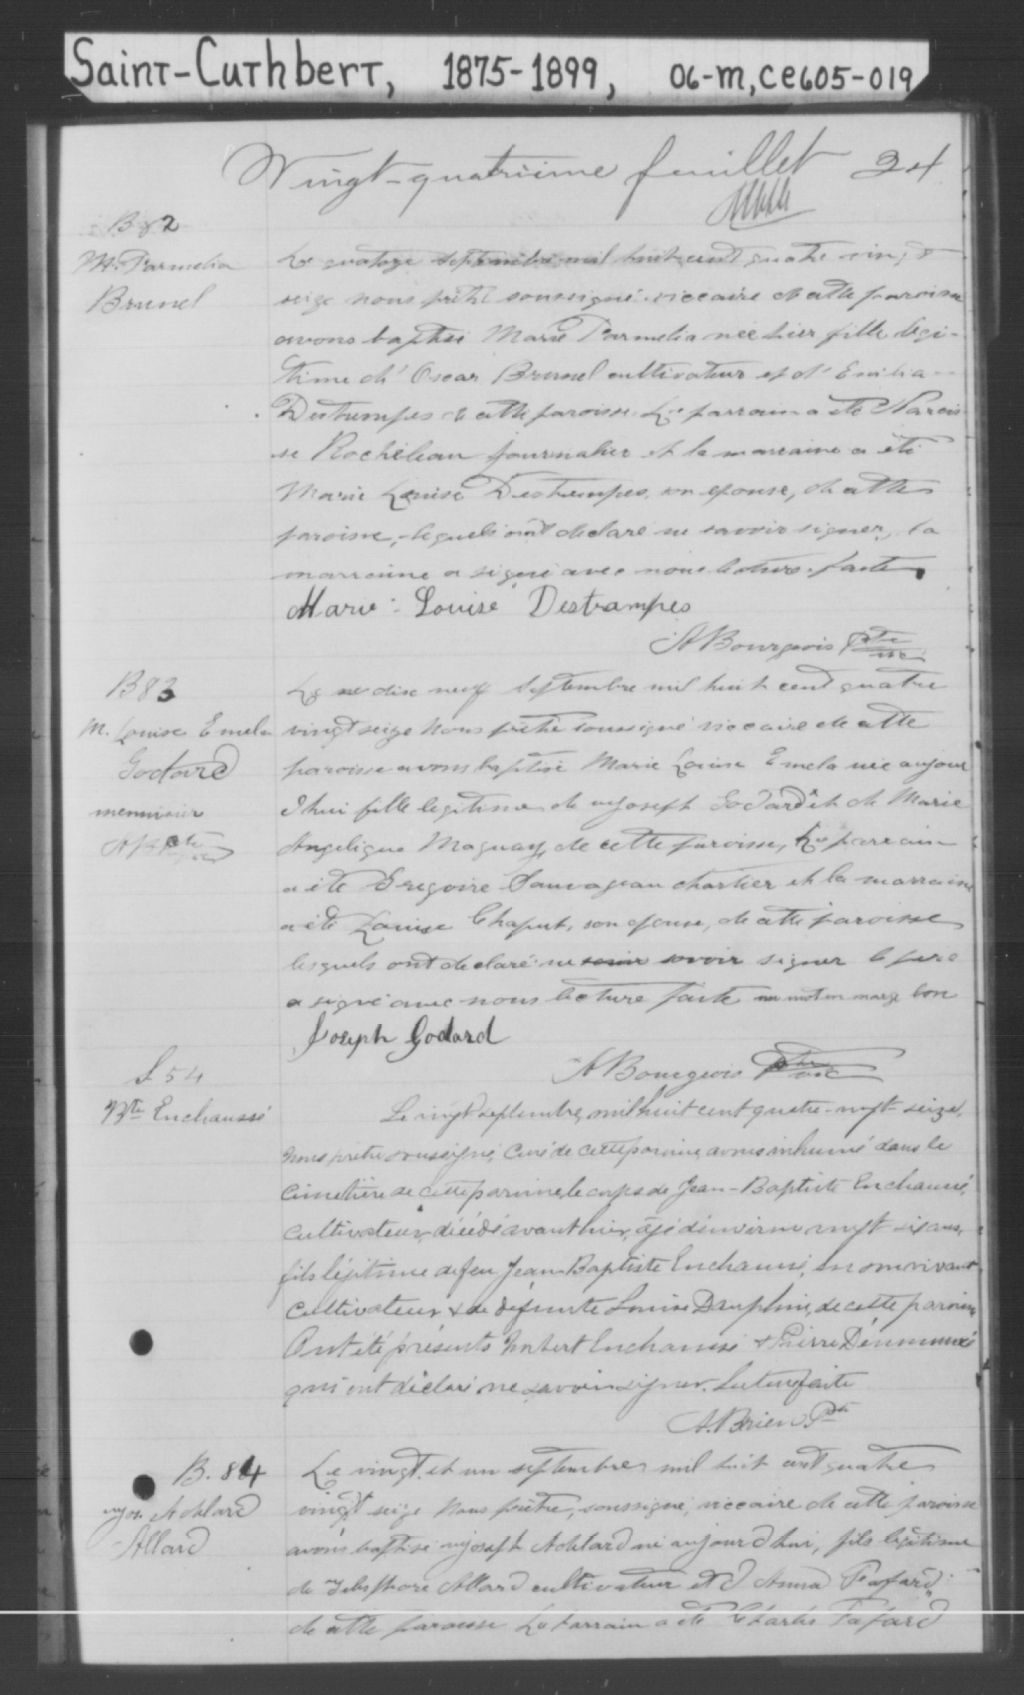 Saint-Cuthbert, 1875-1899, 06-M, CE605-019
Vingt-quatrième feuillet 24
B 82
M. Parmelia
Brunel
Le quatorze septembre mil huit cent quatre vingt
seize nous prêtre soussigné viccaire de cette paroisse
avons baptisé Marie Parmelia née hier fille légi-
time d'Oscar Brunel cultivateur et d'Emilia
Destrempes de cette paroisse. Le parrain a été Narcis
se Rocheleau journalier et la marraine a été
Marie Louise Destrempes, son épouse, de cette
paroisse, lequels ont déclaré ne savoir signer, la
marraine a signé avec nous lecture faite.
Marie Louise Destrampes
A Bourgeois Ptre vic
B 83
M. Louise Emela
Godard
menuisier
Le dix neuf Septembre mil huit cent quatre
vingt seize Nous prêtre soussigné viccaire de cette
paroisse avons baptisé Marie Louise Emela née aujour
d'hui fille legitime de Joseph Godard et de Marie
Angelique Maguay, de cette paroisse, Le parrain
a été Gregoire Sauvageau chartier et la marraine
a été Louise Chaput, son epouse, de cette paroisse
lesquels ont declaré ne savoir signer le père
a signé avec nous lecture faite un mot en marge bon
Joseph Godard
A Bourgeois Ptre vic
S 54
Bte Enchaussé
Le vingt septembre, mil huit cent quatre-vingt-seize,
Nous prêtre soussigné, Curé de cette paroisse, avons inhumé dans le
Cimetière de cette paroisse, le corps de Jean-Baptiste Enchaussé,
Cultivateur, décédé avant hier, âgé d'environ vingt-six ans,
fils légitime de feu Jean-Baptiste Enchaussé, en son vivant
Cultivateur, & de défunte Louise Dauphin, de cette paroisse
Ont été présents Norbert Enchaussé & Pierre
qui ont déclaré ne savoir signer. Lecture faite
A. Brien Ptre
B. 84
Jos. Adélard
Allard
Le vingt et un septembre mil huit cent quatre
vingt seize Nous prêtre, soussigné, viccaire de cette paroisse
avons baptisé Joseph Adélard né aujourd'hui, fils légitime
de Telesphore Allard cultivateur et d'Anna Fafard
de cette paroisse Le parrain a été Charles Fafard